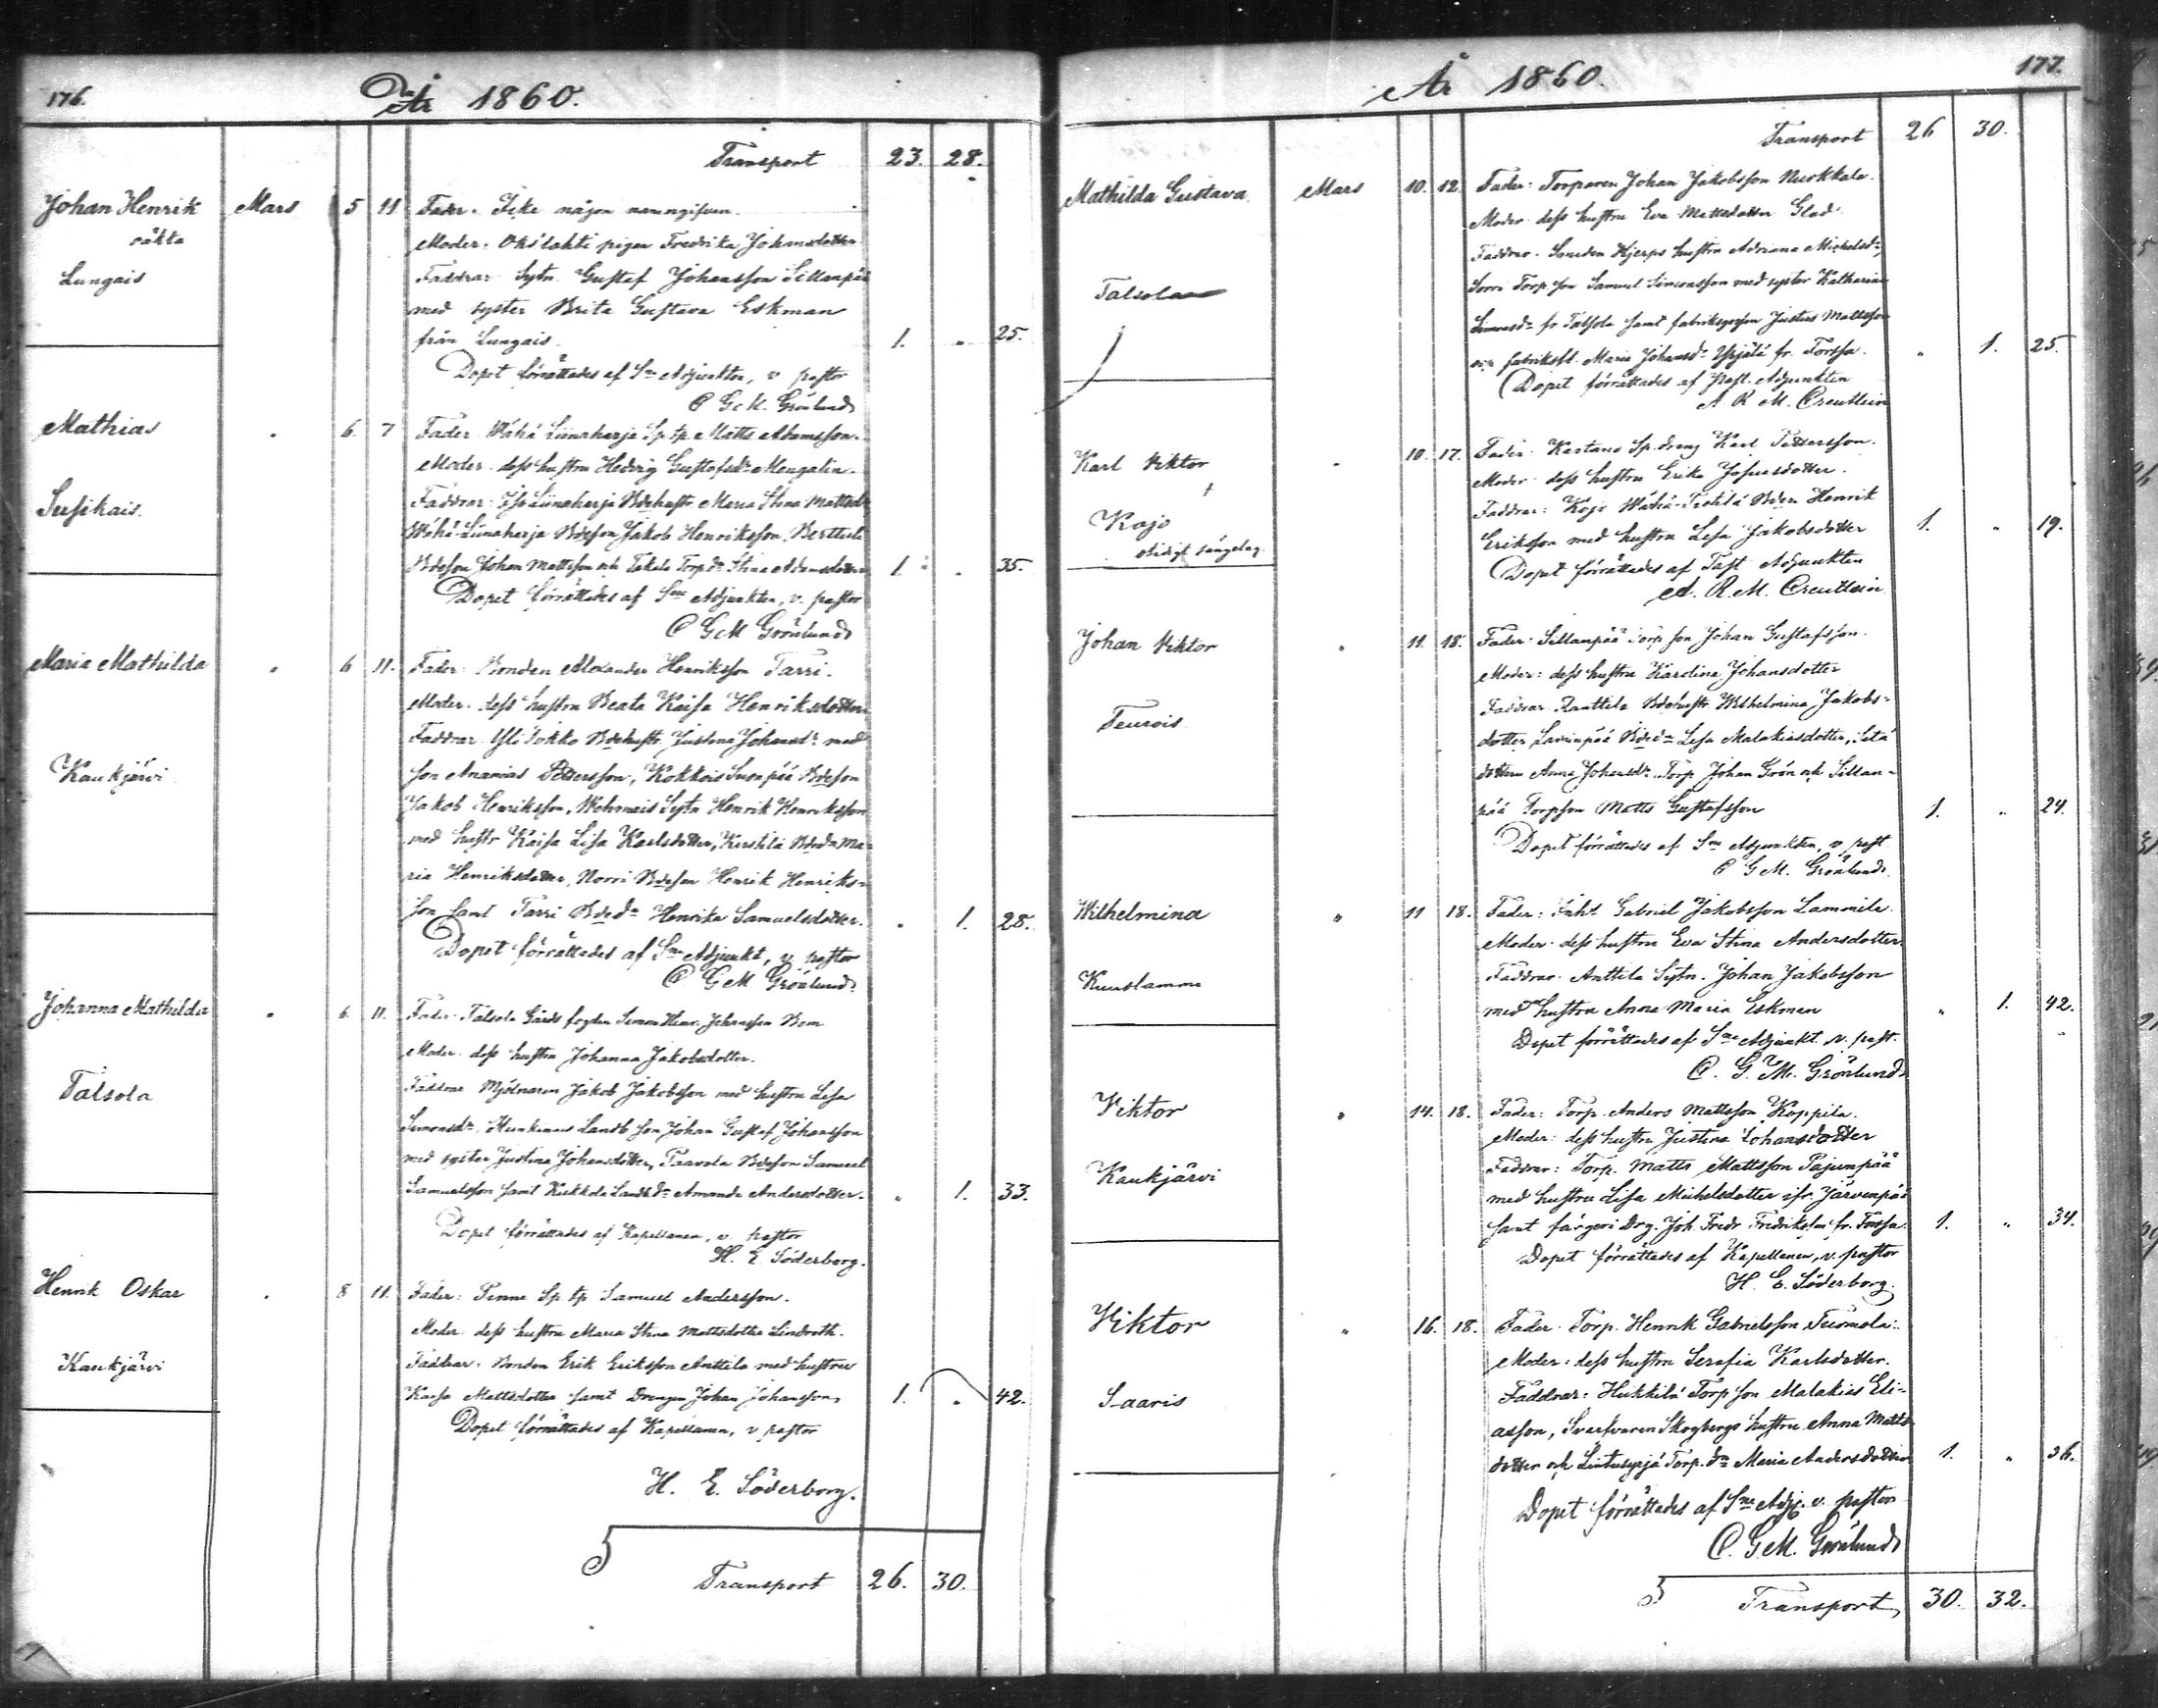 176.
År 1860.
Transport 23. 28.
Johan Henrik Mars 5 11 Fader. Icke någon namngifven.
oäkta
Lungais
Moder. pigan Fredrika Johansdotter
Faddrar. Sytn. Gustaf Johansson Sillanpää
med syster Brita Gustava Eskman
från Lungais. 1. " 25.
Dopet förrättades af Sne Adjunkten, v pastor
C G M. Grönlund
Mathias " 6. 7 Fader Wähä Liinaharja Sp. tp. Matts Adamsson.
Moder. dess hustru Hedvig Gustafsdr Mengalin.
Susikais.
Faddrar: Iso Liinaharja Bdehustr Maria Stina Mattsdr
Wähä-Liinaharja Bdeson Jakob Henriksson, Berttula
Bdeson Johan Mattsson och Torp.dr Stina Adamsdotter 1. " 35.
Dopet förrättades af Sne Adjunkten, v. pastor
C G M Grönlund
Maria Mathilda " 6 11. Fader: Bonden Alexander Henriksson Tarri.
Moder. dess hustru Beata Kaisa Henriksdotter
Kaukjärvi
Faddrar. Yli Jokko Bdehustr. Justina Johansdr med
son Ananias Pettersson, Kokkois Susapää Bdeson
Jakob Henriksson, Sytn Henrik Henriksson
med hustr Kaisa Lisa Karlsdotter, Kerstilä Bdedr Ma-
ria Henriksdotter, Norri Bdeson Henrik Henriks-
son samt Tarri Bdedr Henrika Samuelsdotter. " 1. 28.
Dopet förrättades af Sne Adjunkt, v. pastor
C G M Grönlund.
Johanna Mathilda " 6. 11. Fader. Talsola Gårds fogden Simon Henr. Johansson Bom
Moder. dess hustru Johanna Jakobsdotter.
Talsola
Faddrar Mjölnaren Jakob Jakobsson med hustru Lisa
Simonsdr, Landb son Johan Gustaf Johansson
med syster Justina Johansdotter, Paavola Bdeson Samuel
Samuelsson samt Kukkola Landbdr Amanda Andersdotter. " 1. 33.
Dopet förrättades af Kapellanen, v. pastor
H. E. Söderborg.
Henrik Oskar " 8 11. Fader: Pinna Sp. tp Samuel Andersson.
Moder. dess hustru Maria Stina Mattsdotter Lindroth.
Kaukjärvi
Faddrar. Bonden Erik Eriksson Anttila med hustru
Kaisa Mattsdotter samt Drengen Johan Johansson 1. " 42.
Dopet förrättades af Kapellanen, v pastor
H. E. Söderborg.
Transport 26. 30.
177.
År 1860.
Transport 26 30.
Mathilda Gustava Mars 10. 12. Fader: Torparen Johan Jakobsson
Moder dess hustru Eva Mattsdotter Glad.
Talsola
Faddrar. Smeden Hjerps hustru Adriana Michelsdr,
Sorri Torp son Samuel Simonsson med syster Katharina
Simonsdr fr. Talsola samt fabriksgossen Justus Mattsson
och fabriksfl. Maria Johansdr Ypäjälä fr. Forssa. " 1. 25.
Dopet förrättades af Past. Adjunkten
A R M. Creutlein
Karl Viktor " 10. 17. Fader: Kartano Sp. dreng Karl Pettersson.
Moder dess hustru Erika Josuasdotter.
Kojo
Faddrar: Kojo Wähä-Tvehilä Bden Henrik
Eriksson med hustru Lisa Jakobsdotter 1. " 19.
Dopet förrättades af Past Adjunkten
A. R. M. Creutlein
Johan Viktor " 11. 18. Fader: Sillanpää Torp son Johan Gustafsson.
Moder: dess hustru Karolina Johansdotter
Teurois.
Faddrar Anttila Bdehustr. Wilhelmina Jakobs-
dotter, Bdedr Lisa Malakiasdotter,
dottern Anna Johansdr, Torp. Johan Grön och Sillan-
pää Torpson Matts Gustafsson 1. " 24.
Dopet förrättades af Sne Adjunkten, v past
C G M. Grönlund.
Wilhelmina " 11 18. Fader: Inhs Gabriel Jakobsson Lammila.
Moder. dess hustru Eva Stina Andersdotter
Kuuslammi
Faddrar. Anttila Sytn. Johan Jakobsson
med hustru Anna Maria Eskman " 1. 42.
Dopet förrättades af Sne Adjunkt. v. past.
C. G. M. Grönlund
Viktor " 14. 18. Fader: Torp. Anders Mattsson Koppila.
Moder: dess hustru Justina Johansdotter
Kaukjärvi
Faddrar: Torp. Matts Mattsson Pajunpää
med hustru Lisa Michelsdotter ifr. Järvenpää
samt färgeri Drg. Joh. Fredr Fredriksson fr. Forssa. 1. " 34.
Dopet förrättades af Kapellanen, v. pastor
H. E. Söderborg
Viktor " 16. 18. Fader. Torp. Henrik Gabrielsson Tuomola.
Moder: dess hustru Serafia Karlsdotter.
Saaris
Faddrar: Hukkilä Torp son Malakias Eli-
asson, Svarfvaren Skogbergs hustru Anna Matts-
dotter och Lintusyrjä Torp. dr Maria Andersdotter 1. " 26.
Dopet förrättades af Sne Adj. v. pastor
C. G. M. Grönlund
Transport 30. 32.